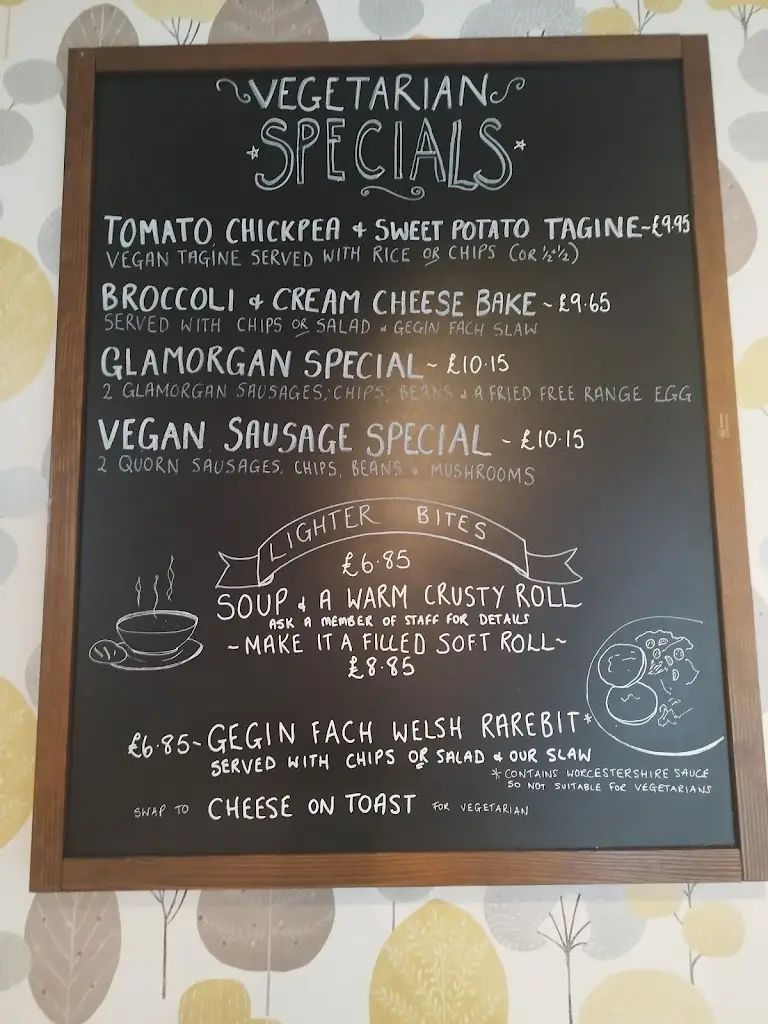 VEGETARIAN
SPECIALS
TOMATO, CHICKPEA & SWEET POTATO TAGINE~£9.95
VEGAN TAGINE SERVED WITH RICE OR CHIPS (OR ½+½)
BROCCOLI & CREAM CHEESE BAKE ~ £9.65
SERVED WITH CHIPS OR SALAD & GEGIN FACH SLAW
GLAMORGAN SPECIAL ~ £10.15
2 GLAMORGAN SAUSAGES, CHIPS, BEANS & A FRIED FREE RANGE EGG
VEGAN SAUSAGE SPECIAL ~ £10.15
2 QUORN SAUSAGES, CHIPS, BEANS & MUSHROOMS
LIGHTER BITES
£6.85
SOUP & A WARM CRUSTY ROLL
ASK A MEMBER OF STAFF FOR DETAILS
~MAKE IT A FILLED SOFT ROLL~
£8.85
£6.85~GEGIN FACH WELSH RAREBIT*
SERVED WITH CHIPS OR SALAD & OUR SLAW
*CONTAINS WORCESTERSHIRE SAUCE
SO NOT SUITABLE FOR VEGETARIANS
SWAP TO CHEESE ON TOAST FOR VEGETARIAN